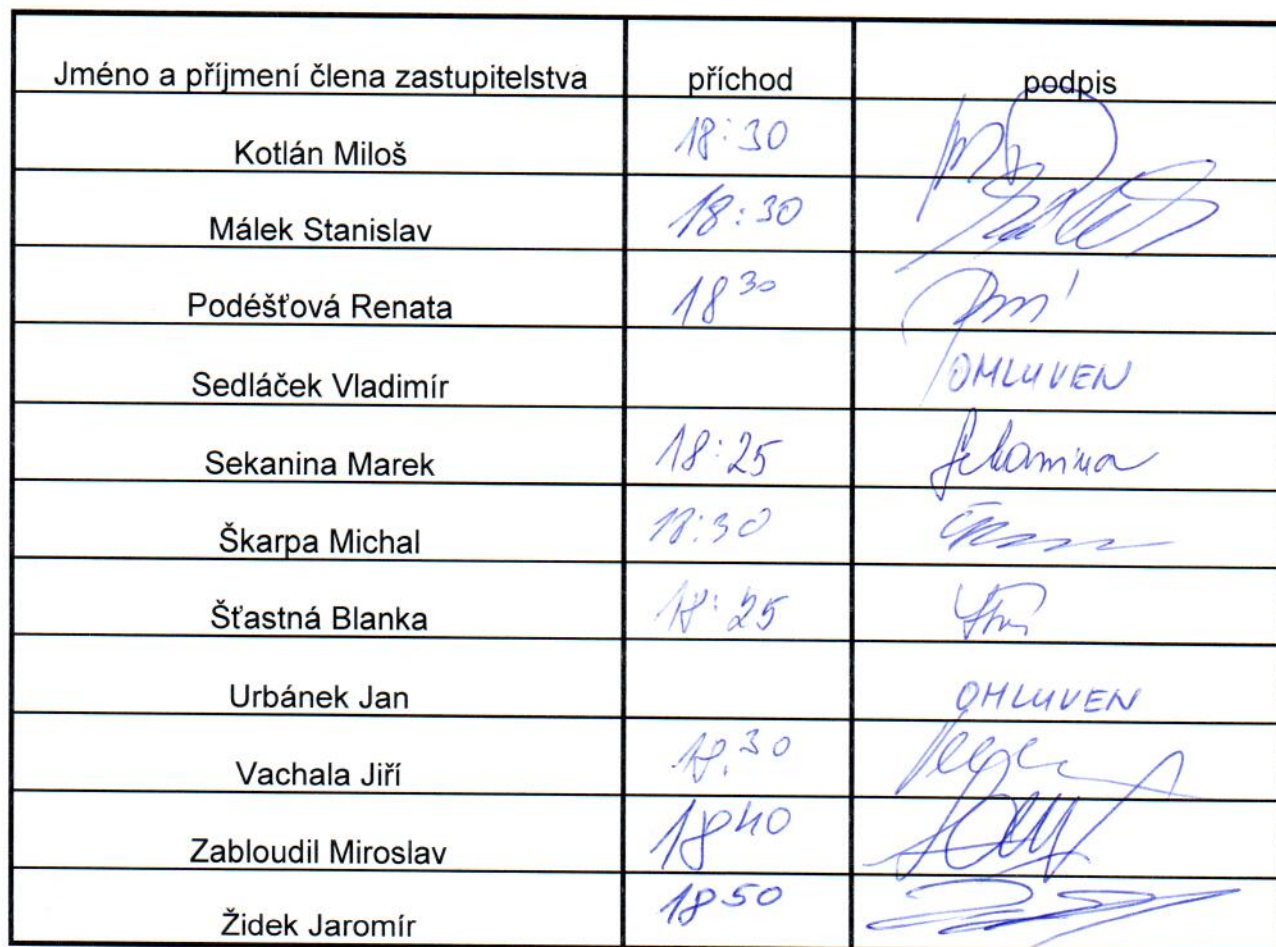 Jméno a příjmení člena zastupitelstva příchod podpis
Kotlán Miloš 18:30
Málek Stanislav 18:30
Podéšťová Renata 18 30
Sedláček Vladimír OMLUVEN
Sekanina Marek 18:25 Sekanina
Škarpa Michal 18:30
Šťastná Blanka 18:25
Urbánek Jan OMLUVEN
Vachala Jiří 18.30
Zabloudil Miroslav 18 40
Židek Jaromír 18 50